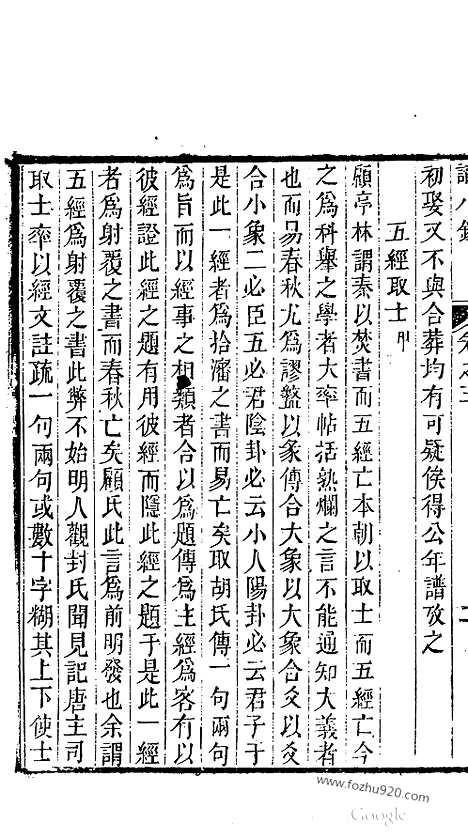 初娶又不與合葬均有可疑俟得公年譜攷之
五經取士
顧亭林謂秦以焚書而五經亡本朝以取士而五經亡今
之為科舉之學者大率帖括熟爛之言不能通知大義者
也而易春秋尤為謬盭以彖傳合大象以大象合爻以爻
合小象二必臣五必君陰卦必云小人陽卦必云君子于
是此一經者為拾瀋之書而易亡矣取胡氏傳一句兩句
為旨而以經事之相類者合以為題傳為主經為客有以
彼經證此經之題有用彼經而隱此經之題于是此一經
者為射覆之書而春秋亡矣顧氏此言為前明發也余謂
五經為射覆之書此弊不始明人觀封氏聞見記唐主司
取士率以經文註疏一句兩句或數十字糊其上下使士
www.fozhu920.com
Google